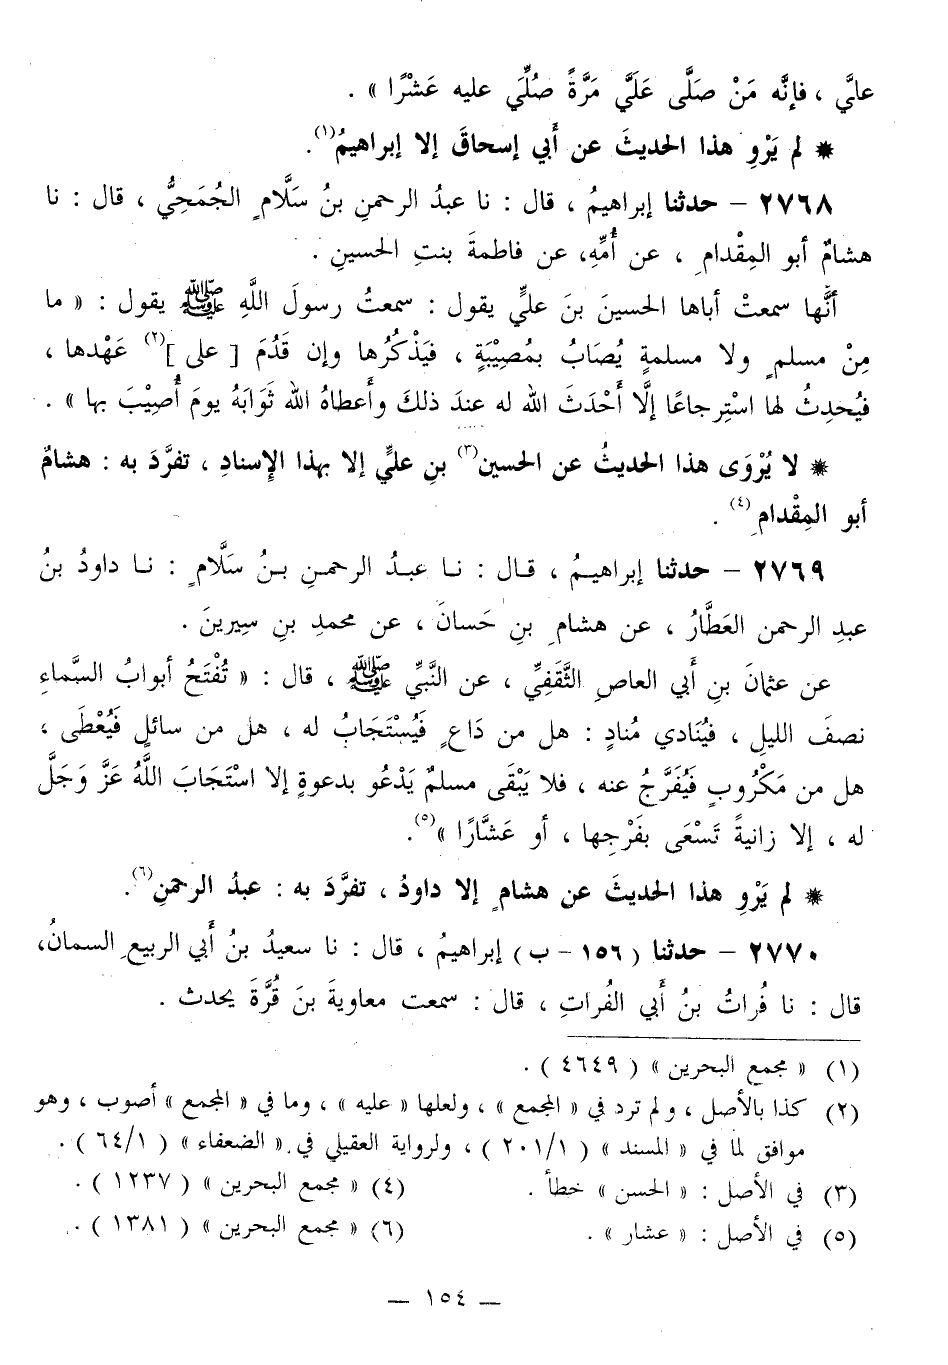 عليَّ ، فإنَّه مَنْ صَلَّى عَلَيَّ مَرَّةً صُلِّيَ عليه عَشْرًا » .
* لم يَرْوِ هذا الحديثَ عن أَبي إسحاقَ إلا إبراهيمُ(١).
٢٧٦٨ – حدثنا إبراهيمُ ، قال : نا عبدُ الرحمنِ بنُ سَلَّامٍ الجُمَحِيُّ ، قال : نا
هشامٌ أبو المِقْدامِ ، عن أُمِّهِ، عن فاطمةَ بنتِ الحسينِ .
أنَّها سمعتْ أباها الحسينَ بنَ عليٍّ يقول : سمعتُ رسولَ اللَّهِ ﷺ يقول : « ما
مِنْ مسلمٍ ولا مسلمةٍ يُصَابُ بمُصِيْبَةٍ ، فيَذْكُرُها وإن قَدُمَ [ على ](٢) عَهْدها ،
فيُحدِثُ لها اسْتِرجاعًا إلَّا أَحْدَثَ الله له عندَ ذلكَ وأَعطاهُ الله ثَوَابَهُ يومَ أُصِيْبَ بها » .
* لا يُرْوَى هذا الحديثُ عن الحسين(٣) بنِ عليٍّ إلا بهذا الإسنادِ ، تفرَّدَ به : هشامٌ
أبو المِقْدامِ(٤) .
٢٧٦٩ – حدثنا إبراهيمُ ، قال : نا عبدُ الرحمنِ بنُ سَلَّامٍ : نا داودُ بنُ
عبدِ الرحمن العَطَّارُ ، عن هشامِ بنِ حَسانَ ، عن محمدِ بنِ سِيرينَ .
عن عثمانَ بنِ أَبي العاصِ الثَّقَفِيِّ ، عن النَّبيِّ ﷺ ، قال : « تُفْتَحُ أبوابُ السَّماءِ
نصفَ الليلِ ، فيُنَادي مُنادٍ : هل من دَاعٍ فَيُسْتَجَابُ له ، هل من سائلٍ فَيُعْطَى ،
هل من مَكْرُوبٍ فَيُفَرَّجُ عنه ، فلا يَبْقَى مسلمٌ يَدْعُو بدعوةٍ إلا اسْتَجَابَ اللَّهُ عَزَّ وَجَلَّ
له ، إلا زانيةً تَسْعَى بفَرْجِها ، أو عَشَّارًا »(٥).
* لم يَرْوِ هذا الحديثَ عن هشامٍ إلا داودُ ، تفرَّدَ به : عبدُ الرحمنِ(٦).
٢٧٧٠ – حدثنا ( ١٥٦ – ب ) إبراهيمُ ، قال : نا سعيدُ بنُ أَبي الربيعِ السمانُ،
قال : نا فُراتُ بنُ أَبي الفُراتِ ، قال : سمعت معاويةَ بنَ قُرَّةَ يحدث .
(١) « مجمع البحرين » ( ٤٦٤٩ ) .
(٢) كذا بالأصل ، ولم ترد في « المجمع » ، ولعلها « عليه » ، وما في « المجمع » أصوب ، وهو
موافق لما في « المسند » ( ٢٠١/١ ) ، ولرواية العقيلي في « الضعفاء » ( ٦٤/١ ) .
(٣) في الأصل : « الحسن » خطأ . (٤) « مجمع البحرين » ( ١٢٣٧ ) .
(٥) في الأصل : « عشار » . (٦) « مجمع البحرين » ( ١٣٨١ ) .
– ١٥٤ –